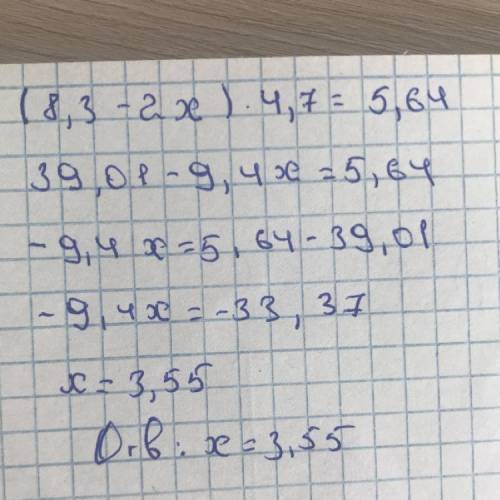 (8,3-2x)·4,7=5,64
39,01-9,4x=5,64
-9,4x=5,64-39,01
-9,4x=-33,37
x=3,55
Отв: x=3,55